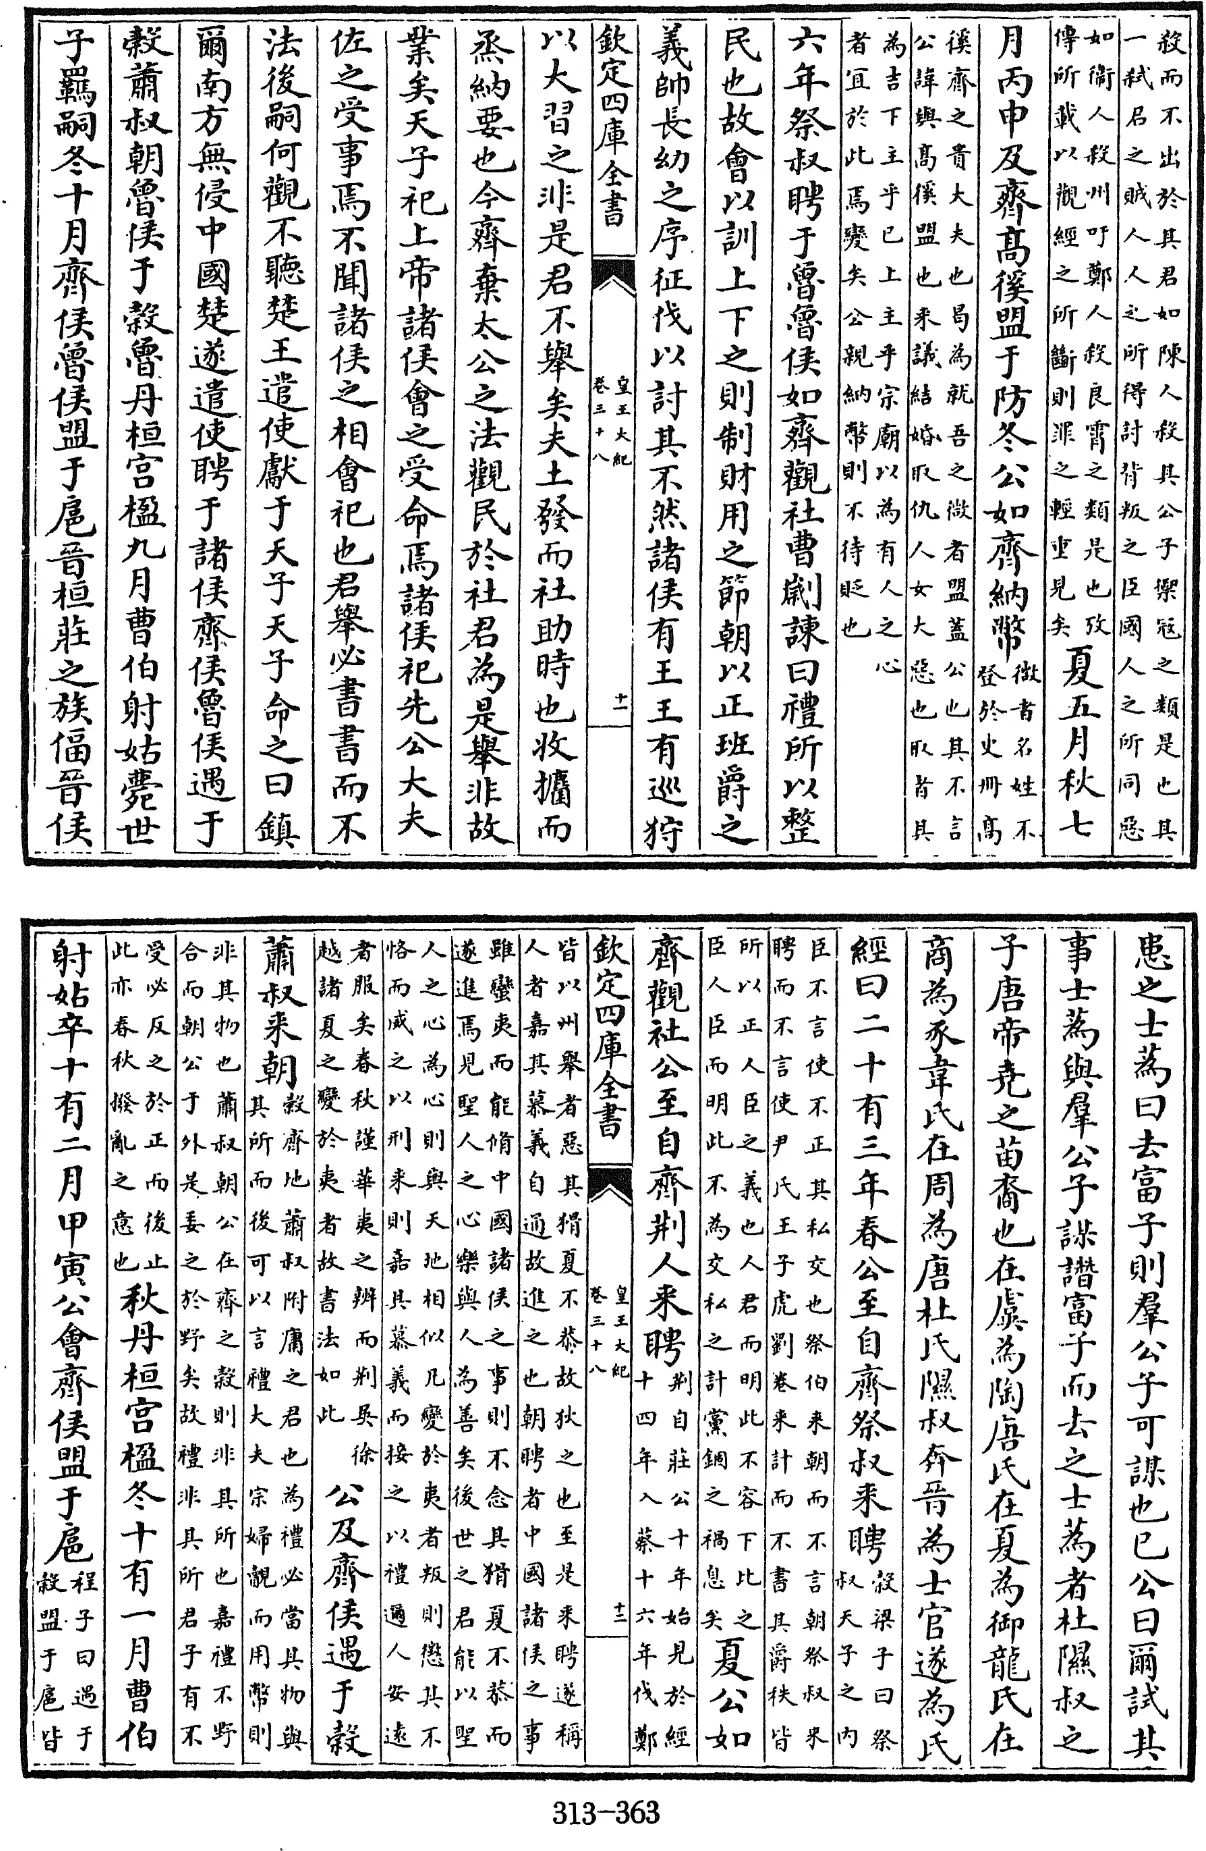 殺而不出於其君如陳人殺其公子禦寇之類是也其
一弑君之賊人人之所得討背叛之臣國人之所同惡
如衞人殺州吁鄭人殺良霄之類是也攷
傳所載以觀經之所斷則罪之輕重見矣
夏五月秋七
月丙申及齊高徯盟于防冬公如齊納幣
微者名姓不
登於史冊高
徯齊之貴大夫也曷為就吾之微者盟蓋公也其不言
公諱與高徯盟也來議結婚取仇人女大惡也取者其
為吉下主乎已上主乎宗廟以為有人之心
者宜於此焉變矣公親納幣則不待貶也
六年祭叔聘于魯魯侯如齊觀社曹劌諫曰禮所以整
民也故會以訓上下之則制財用之節朝以正班爵之
義帥長幼之序征伐以討其不然諸侯有王王有巡狩
欽定四庫全書
皇王大紀
卷三十八
十一
以大習之非是君不舉矣夫土發而社助時也收攟而
烝納要也今齊棄太公之法觀民於社君為是舉非故
業矣天子祀上帝諸侯會之受命焉諸侯祀先公大夫
佐之受事焉不聞諸侯之相會祀也君舉必書書而不
法後嗣何觀不聽楚王遣使獻于天子天子命之曰鎮
爾南方無侵中國楚遂遣使聘于諸侯齊侯魯侯遇于
穀蕭叔朝魯侯于穀魯丹桓宮楹九月曹伯射姑薨世
子羈嗣冬十月齊侯魯侯盟于扈晉桓莊之族偪晉侯
患之士蒍曰去富子則羣公子可謀也已公曰爾試其
事士蒍與羣公子謀譖富子而去之士蒍者杜隰叔之
子唐帝堯之苗裔也在虞為陶唐氏在夏為御龍氏在
商為豕韋氏在周為唐杜氏隰叔奔晉為士官遂為氏
經曰二十有三年春公至自齊祭叔來聘
穀梁子曰祭
叔天子之內
臣不言使不正其私交也祭伯來朝而不言朝祭叔來
聘而不言使尹氏王子虎劉卷來計而不書其爵秩皆
所以正人臣之義也人君而明此不容下比之
臣人臣而明此不為交私之計黨錮之禍息矣
夏公如
齊觀社公至自齊荆人來聘
荆自莊公十年始見於經
十四年入蔡十六年伐鄭
欽定四庫全書
皇王大紀
卷三十八
十二
皆以州舉者惡其猾夏不恭故狄之也至是來聘遂稱
人者嘉其慕義自通故進之也朝聘者中國諸侯之事
雖蠻夷而能脩中國諸侯之事則不念其猾夏不恭而
遂進焉見聖人之心樂與人為善矣後世之君能以聖
人之心為心則與天地相似凡變於夷者叛則懲其不
恪而威之以刑來則嘉其慕義而接之以禮邇人安遠
者服矣春秋謹華夷之辨而荆吳徐
越諸夏之變於夷者故書法如此
公及齊侯遇于穀
蕭叔來朝
穀齊地蕭叔附庸之君也為禮必當其物與
其所而後可以言禮大夫宗婦覿而用幣則
非其物也蕭叔朝公在齊之穀則非其所也嘉禮不野
合而朝公于外是委之於野矣故禮非其所君子有不
受必反之於正而後止
此亦春秋撥亂之意也
秋丹桓宮楹冬十有一月曹伯
射姑卒十有二月甲寅公會齊侯盟于扈
程子曰遇于
穀盟于扈皆
313-363